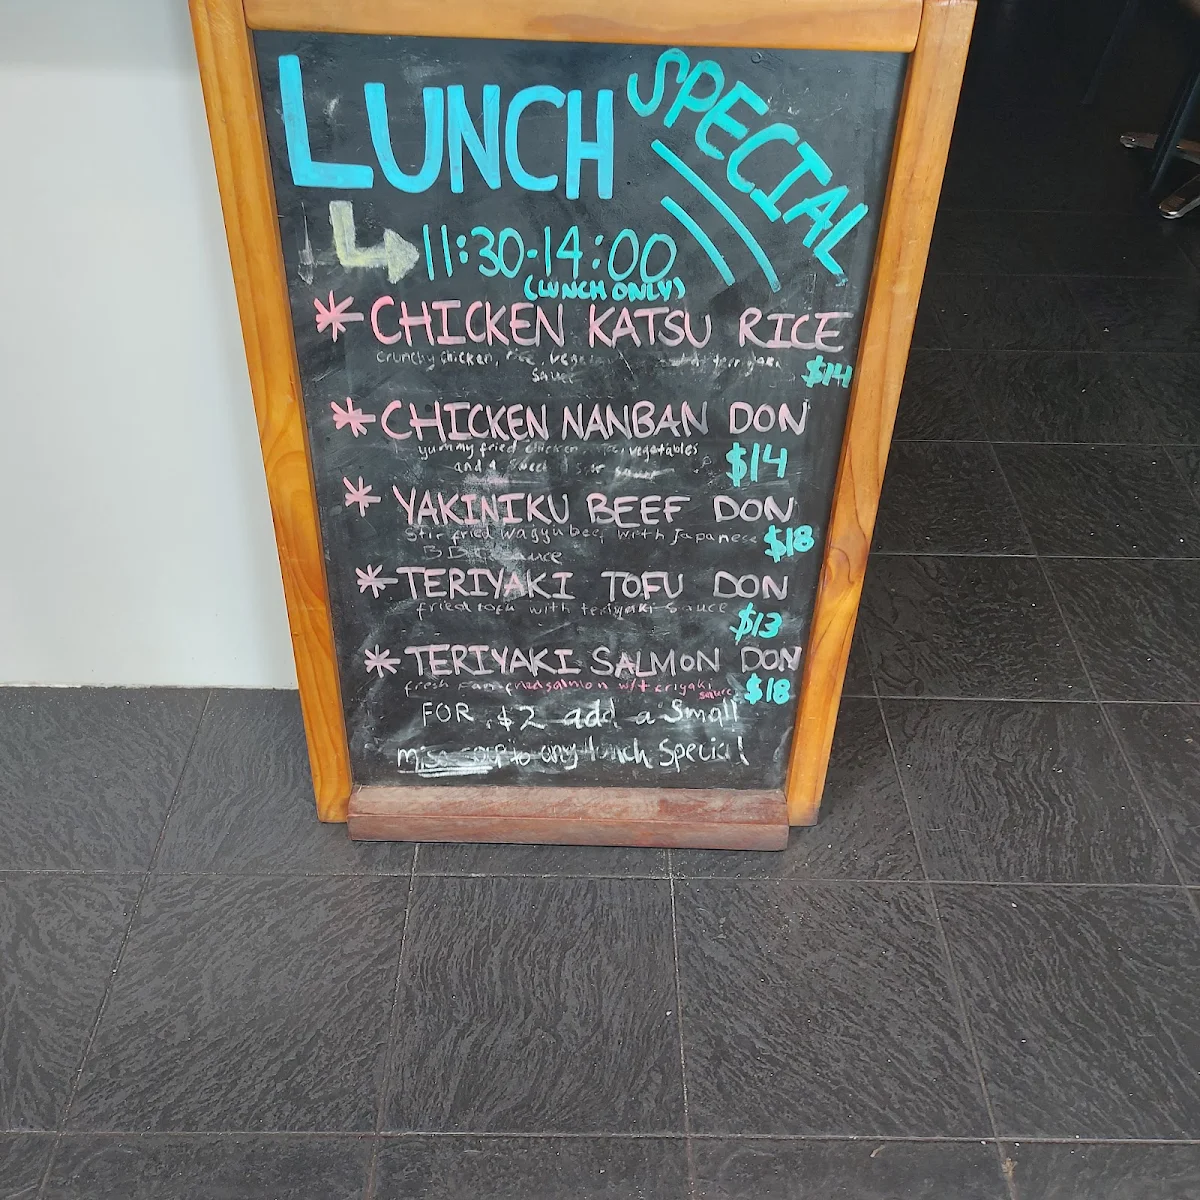 LUNCH SPECIAL
11:30-14:00
(LUNCH ONLY)
* CHICKEN KATSU RICE
crunchy chicken, rice, teriyaki
sauce
$14
* CHICKEN NANBAN DON
yummy fried chicken vegetables
and sweet sauce
$14
* YAKINIKU BEEF DON
Stir fried wagyu beef with Japanese
BBQ sauce
$18
* TERIYAKI TOFU DON
fried tofu with teriyaki sauce
$13
* TERIYAKI SALMON DON
fresh pan fried salmon w/teriyaki
sauce
$18
FOR $2 add a small
miso soup to any lunch special